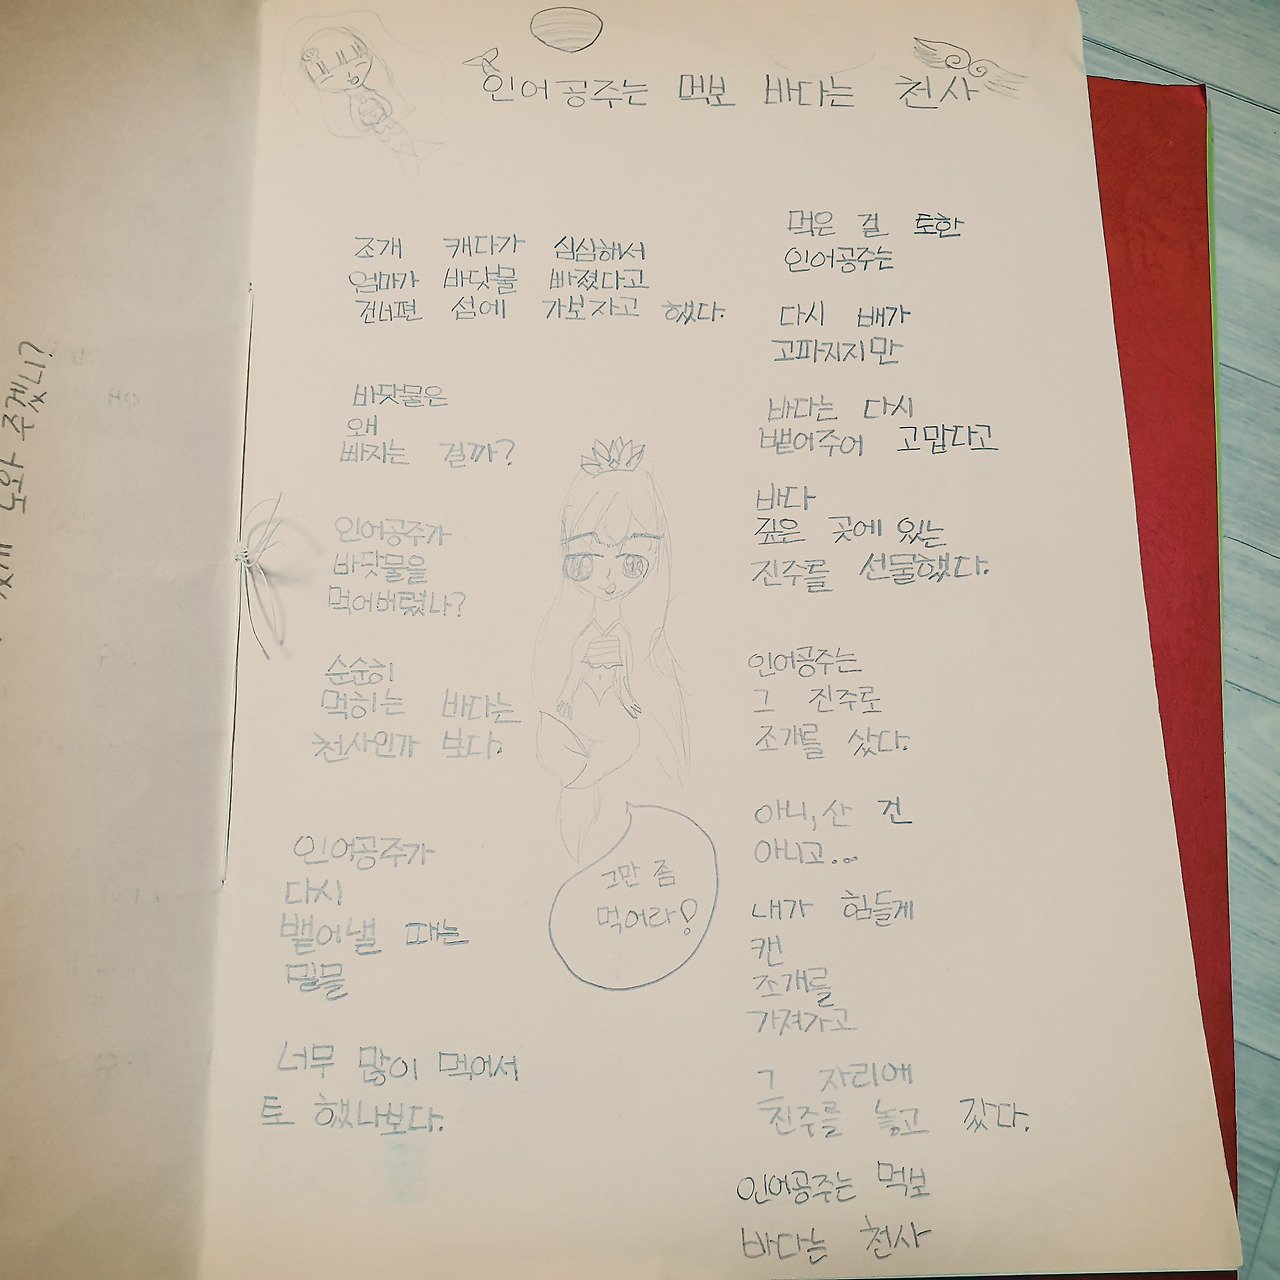 인어공주는 먹보 바다는 천사
조개 캐다가 심심해서
엄마가 바닷물 빠졌다고
건너편 섬에 가보자고 했다.
바닷물은
왜
빠지는 걸까?
인어공주가
바닷물을
먹어버렸나?
순순히
먹히는 바다는
천사인가 보다.
인어공주가
다시
뱉어낼 때는
밀물
너무 많이 먹어서
토 했나보다.
그만 좀
먹어라!
먹은 걸 토한
인어공주는
다시 배가
고파지지만
바다는 다시
뱉어주어 고맙다고
바다
깊은 곳에 있는
진주를 선물했다.
인어공주는
그 진주로
조개를 샀다.
아니, 산 건
아니고...
내가 힘들게
캔
조개를
가져가고
그 자리에
진주를 놓고 갔다.
인어공주는 먹보
바다는 천사
도와 주겠니?